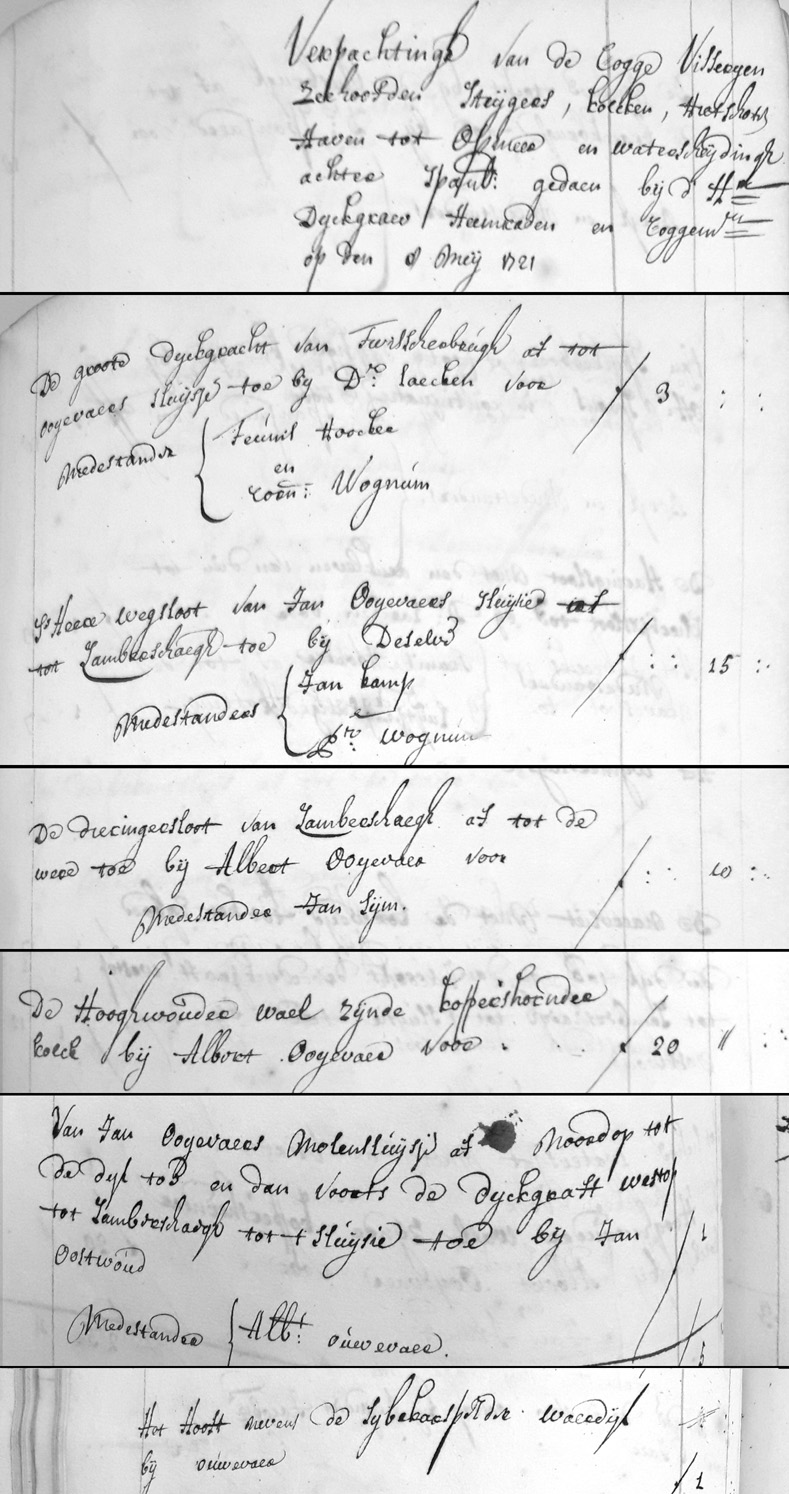 Verpachtinge van de Cogge Visseryen
Zeehoofden Steijgers, kolcken, Hretschots
Haven tot Opmeer en waterscheijdingh
achter Spanb: gedaen bij d' Hre
Dyckgraev Heemraden en Coggemrn
op den 8 Meij 1721
De groote dyckgracht van Twisscherbrugh af tot
oogevaers sluijsje toe by Dr. laecken voor / 3 : :
Medestander { Teunis Hoocker
en
Corn: Wognúm
Ss Heere wegsloot van Jan Oogevaers Sluijsie af
tot Lambrschaegh toe bij Deselve / : : 15 :
Medestanders { Jan kamp
Pr. Wognum
De driringersloot van Lamberschaegh af tot de
were toe bij Albert Oogevaer voor / : : 10 :
Medestander Jan Sijm.
De Hooghwoúder wael zynde koppershornder
kolck bij Albert Oogevaer voor : / 20 " :
Van Jan Oogevaers Molensluijsje af Noordop tot
de dyk toe en dan voorts de dyckgraft westop
tot Lambrschaegh tot t sluijsie toe bij Jan / 1
Oostwoúd
Medestander { Albt: oúwevaer. / 5
Het Hooft nevens de Sybekarspelder waerdyk
bij oúwevaer / 1